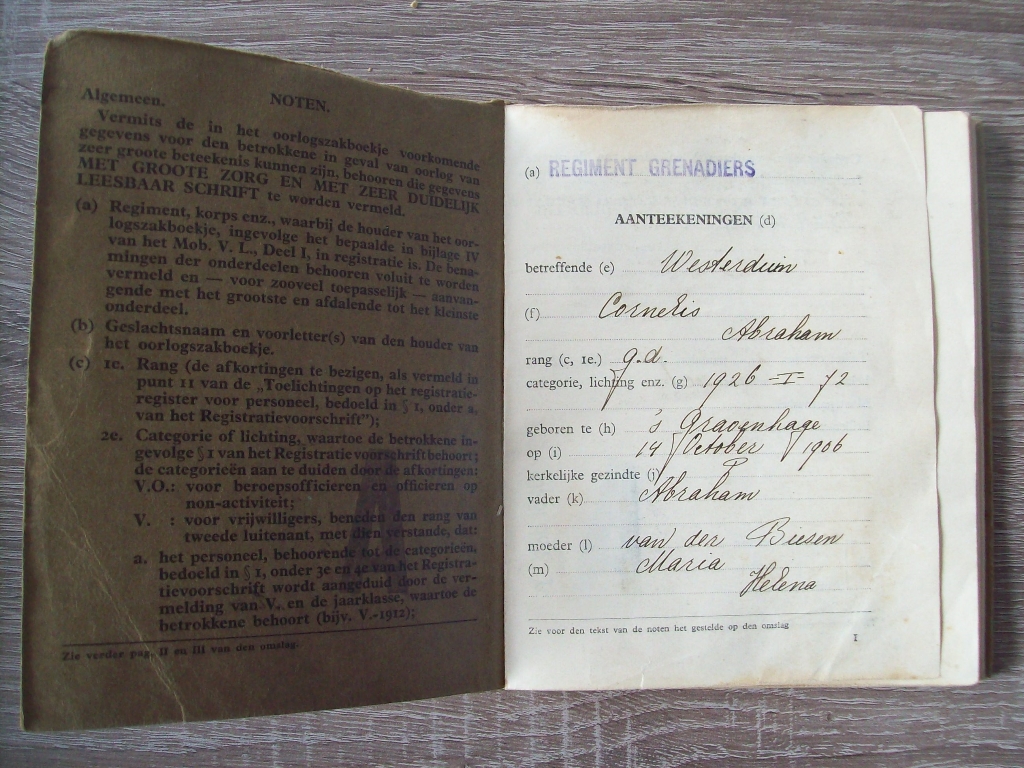 Algemeen. NOTEN.
Vermits de in het oorlogszakboekje voorkomende
gegevens voor den betrokkene in geval van oorlog van
zeer groote beteekenis kunnen zijn, behooren die gegevens
MET GROOTE ZORG EN MET ZEER DUIDELIJK
LEESBAAR SCHRIFT te worden vermeld.
(a) Regiment, korps enz., waarbij de houder van het oor-
logszakboekje, ingevolge het bepaalde in bijlage IV
van het Mob. V. L., Deel I, in registratie is. De bena-
mingen der onderdeelen behooren voluit te worden
vermeld en — voor zooveel toepasselijk — aanvan-
gende met het grootste en afdalende tot het kleinste
onderdeel.
(b) Geslachtsnaam en voorletter(s) van den houder van
het oorlogszakboekje.
(c) 1e. Rang (de afkortingen te bezigen, als vermeld in
punt 11 van de „Toelichtingen op het registratie-
register voor personeel, bedoeld in § 1, onder a,
van het Registratievoorschrift");
2e. Categorie of lichting, waartoe de betrokkene in-
gevolge § 1 van het Registratievoorschrift behoort;
de categorieën aan te duiden door de afkortingen:
V.O.: voor beroepsofficieren en officieren op
non-activiteit;
V. : voor vrijwilligers, beneden den rang van
tweede luitenant, met dien verstande, dat:
a. het personeel, behoorende tot de categorieën,
bedoeld in § 1, onder 3e en 4e van het Registra-
tievoorschrift wordt aangeduid door de ver-
melding van V., en de jaarklasse, waartoe de
betrokkene behoort (bijv. V.-1912);
Zie verder pag. II en III van den omslag.
(a) REGIMENT GRENADIERS
AANTEEKENINGEN (d)
betreffende (e) Westerduin
(f) Cornelis
Abraham
rang (c, 1e.) g.d.
categorie, lichting enz. (g) 1926 -I- 72
geboren te (h) 's Gravenhage
op (i) 14 October 1906
kerkelijke gezindte (j)
vader (k) Abraham
moeder (l) van der Biesen
(m) Maria
Helena
Zie voor den tekst van de noten het gestelde op den omslag
1